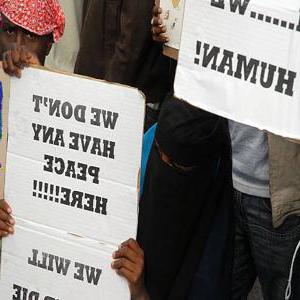 WE DON'T
HAVE ANY
PEACE
HERE!!!!!!
WE WILL
DIE
........WE
HUMAN!